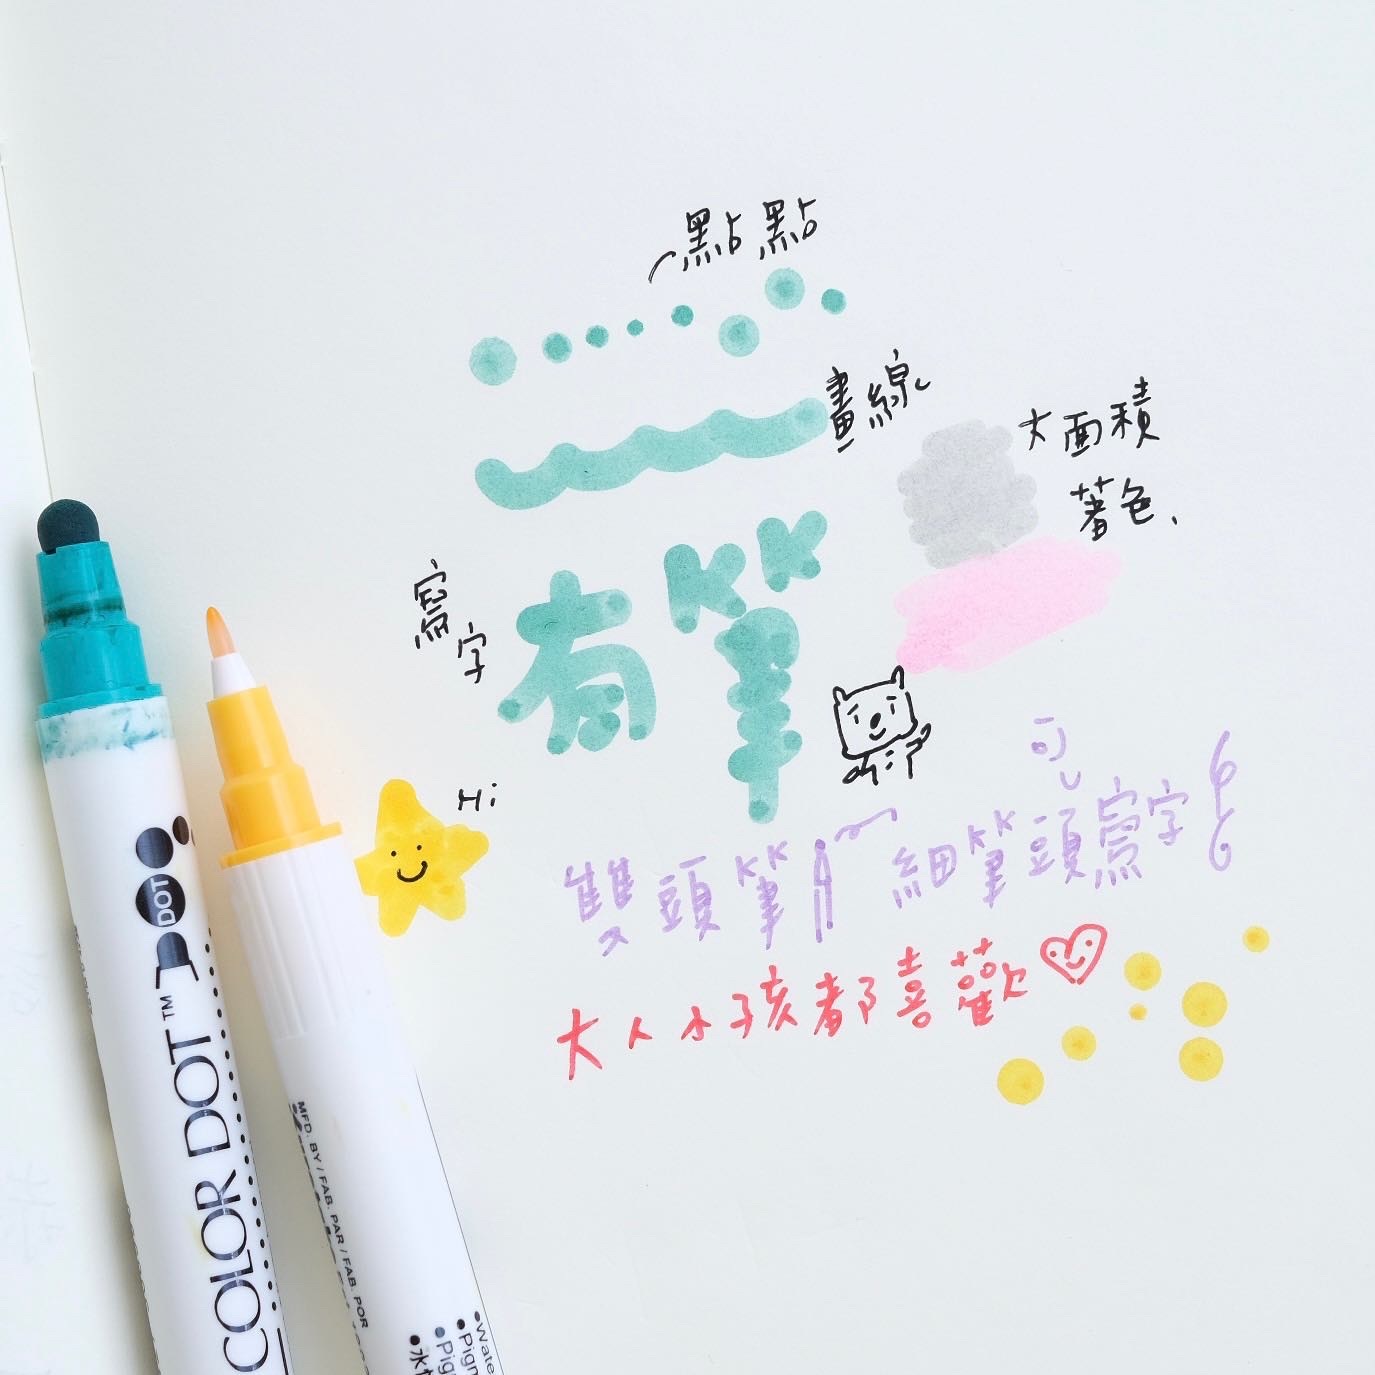 點點
畫線
大面積
著色.
寫字
有筆
Hi
可
雙頭筆 細筆頭寫字
大人小孩都喜歡
DOT
COLOR DOT™
MFD. BY / FAB. PAR / FAB. POR
•Wate
•Pigm
•Pig